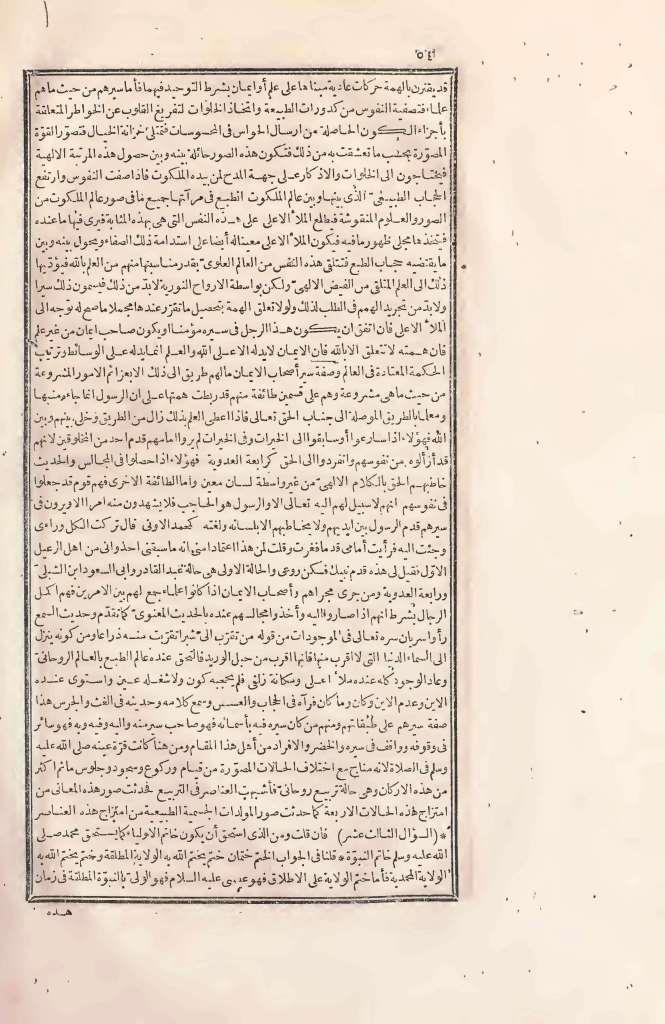 قد يقترن بالهمة حركات عادية مبناها على علم أو ايمان بشرط التوحيد فيهما فأما سيرهم من حيث ما هم
علماء فتصفية النفوس من كدورات الطبيعة واتخاذ الخلوات لتفريغ القلوب عن الخواطر المتعلقة
بأجزاء الكون الحاصلة من ارسال الحواس فى المحسوسات فتمتلئ خزانة الخيال فتصور القوة
المصورة بحسب ما تعشقت به من ذلك فتكون هذه الصور حائلة بينه وبين حصول هذه المرتبة الالهية
فيحتاجون الى الخلوات والاذكار على جهة المدح لمن بيده الملكوت فاذا صفت النفوس وارتفع
الحجاب الطبيعى الذى بينها وبين عالم الملكوت انطبع فى مرآتها جميع ما فى صور عالم الملكوت من
الصور والعلوم المنقوشة فيطلع الملأ الاعلى على هذه النفس التى هى بهذه المثابة فيرى فيها ما عنده
فيتخذها مجلى ظهور ما فيه فيكون الملأ الاعلى معينا له أيضا على استدامة ذلك الصفاء ويحول بينه وبين
ما يقتضيه حجاب الطبع فتتلقى هذه النفس من العالم العلوى بقدر مناسبتها منهم من العلم بالله فيؤديها
ذلك الى العلم المتلقى من الفيض الالهى ولكن بواسطة الارواح النورية لابد من ذلك فيسمون ذلك سيرا
ولابد من تجريد الهمم فى الطلب لذلك ولولا تعلق الهمة بتحصيل ما تقرر عندها مجملا ما صح له توجه الى
الملأ الاعلى فان اتفق ان يكون هذا الرجل فى سيره مؤمنا او يكون صاحب ايمان من غير علم
فان همته لا تتعلق الا بالله فان الايمان لا يدله الا على الله والعلم انما يدله على الوسائط وترتيب
الحكمة المعتادة فى العالم وصفة سير أصحاب الايمان ما لهم طريق الى ذلك الا بعزائم الامور المشروعة
من حيث ما هى مشروعة وهم على قسمين طائفة منهم قد ربطت همتها على ان الرسول انما جاء منبها
ومعلما بالطريق الموصلة الى جناب الحق تعالى فاذا اعطى العلم بذلك زال من الطريق وخلى بينهم وبين
الله فهؤلاء اذا سارعوا أو سابقوا الى الخيرات وفى الخيرات لم يروا امامهم قدم احد من المخلوقين لانهم
قد أزالوه من نفوسهم وانفردوا الى الحق كرابعة العدوية فهؤلاء اذا حصلوا فى المجالس والحديث
خاطبهم الحق بالكلام الالهى من غير واسطة لسان معين واما الطائفة الاخرى فهم قوم قد جعلوا
فى نفوسهم انهم لا سبيل لهم اليه تعالى الا والرسول هو الحاجب فلا يشهدون منه امرا الا ويرون فى
سيرهم قدم الرسول بين ايديهم ولا يخاطبهم الا بلسانه ولغته كمحمد الاوانى قال تركت الكل ورائى
وجئت اليه فرأيت أمامى قدما فغرت وقلت لمن هذا اعتمادا منى انه ما سبقنى احد وانى من اهل الرعيل
الاول فقيل لى هذه قدم نبيك فسكن روعى والحالة الاولى هى حالة عبد القادر وابى السعود ابن الشبلى
ورابعة العدوية ومن جرى مجراهم وأصحاب الايمان اذا كانوا علماء جمع لهم بين الامرين فهم اكمل
الرجال بشرط انهم اذا صاروا اليه وأخذوا مجالسهم عنده بالحديث المعنوى كما تقدم وحديث السمع
رأوا سريان سره تعالى فى الموجودات من قوله من تقرب الى شبرا تقربت منه ذراعا ومن كونه ينزل
الى السماء الدنيا التى لا اقرب منها فانها اقرب من حبل الوريد فالتحق عنده عالم الطبع بالعالم الروحانى
وعاد الوجود كله عنده ملأ اعلى ومكانة زلفى فلم يحجبه كون ولا شغله عين واستوى عنده
الاين وعدم الاين وكان وما كان فرآه فى الحجاب والعسس وسمع كلامه وحديثه فى الفت والجرس هذا
صفة سيرهم على طبقاتهم ومنهم من كان سيره فيه بأسمائه فهو صاحب سير منه واليه وفيه وبه فهو سائر
فى وقوفه وواقف فى سيره والخضر والافراد من أهل هذا المقام ومن هنا كانت قرة عينه صلى الله عليه
وسلم فى الصلاة لانه مناج مع اختلاف الحالات المصورة من قيام وركوع وسجود وجلوس ما ثم اكثر
من هذه الاركان وهى حالة تربيع روحانى فأشبهت العناصر فى التربيع فحدثت صور هذه المعانى من
امتزاج هذه الحالات الاربعة كما حدثت صور المولدات الجسمية الطبيعية من امتزاج هذه العناصر
* (السؤال الثالث عشر) فان قلت ومن الذى استحق أن يكون خاتم الاولياء كما يستحق محمد صلى
الله عليه وسلم خاتم النبوة * فلنا فى الجواب الختم ختمان ختم يختم الله به الولاية المطلقة وختم يختم الله به
الولاية المحمدية فأما ختم الولاية على الاطلاق فهو عيسى عليه السلام فهو الولى بالنبوة المطلقة فى زمان
هذه